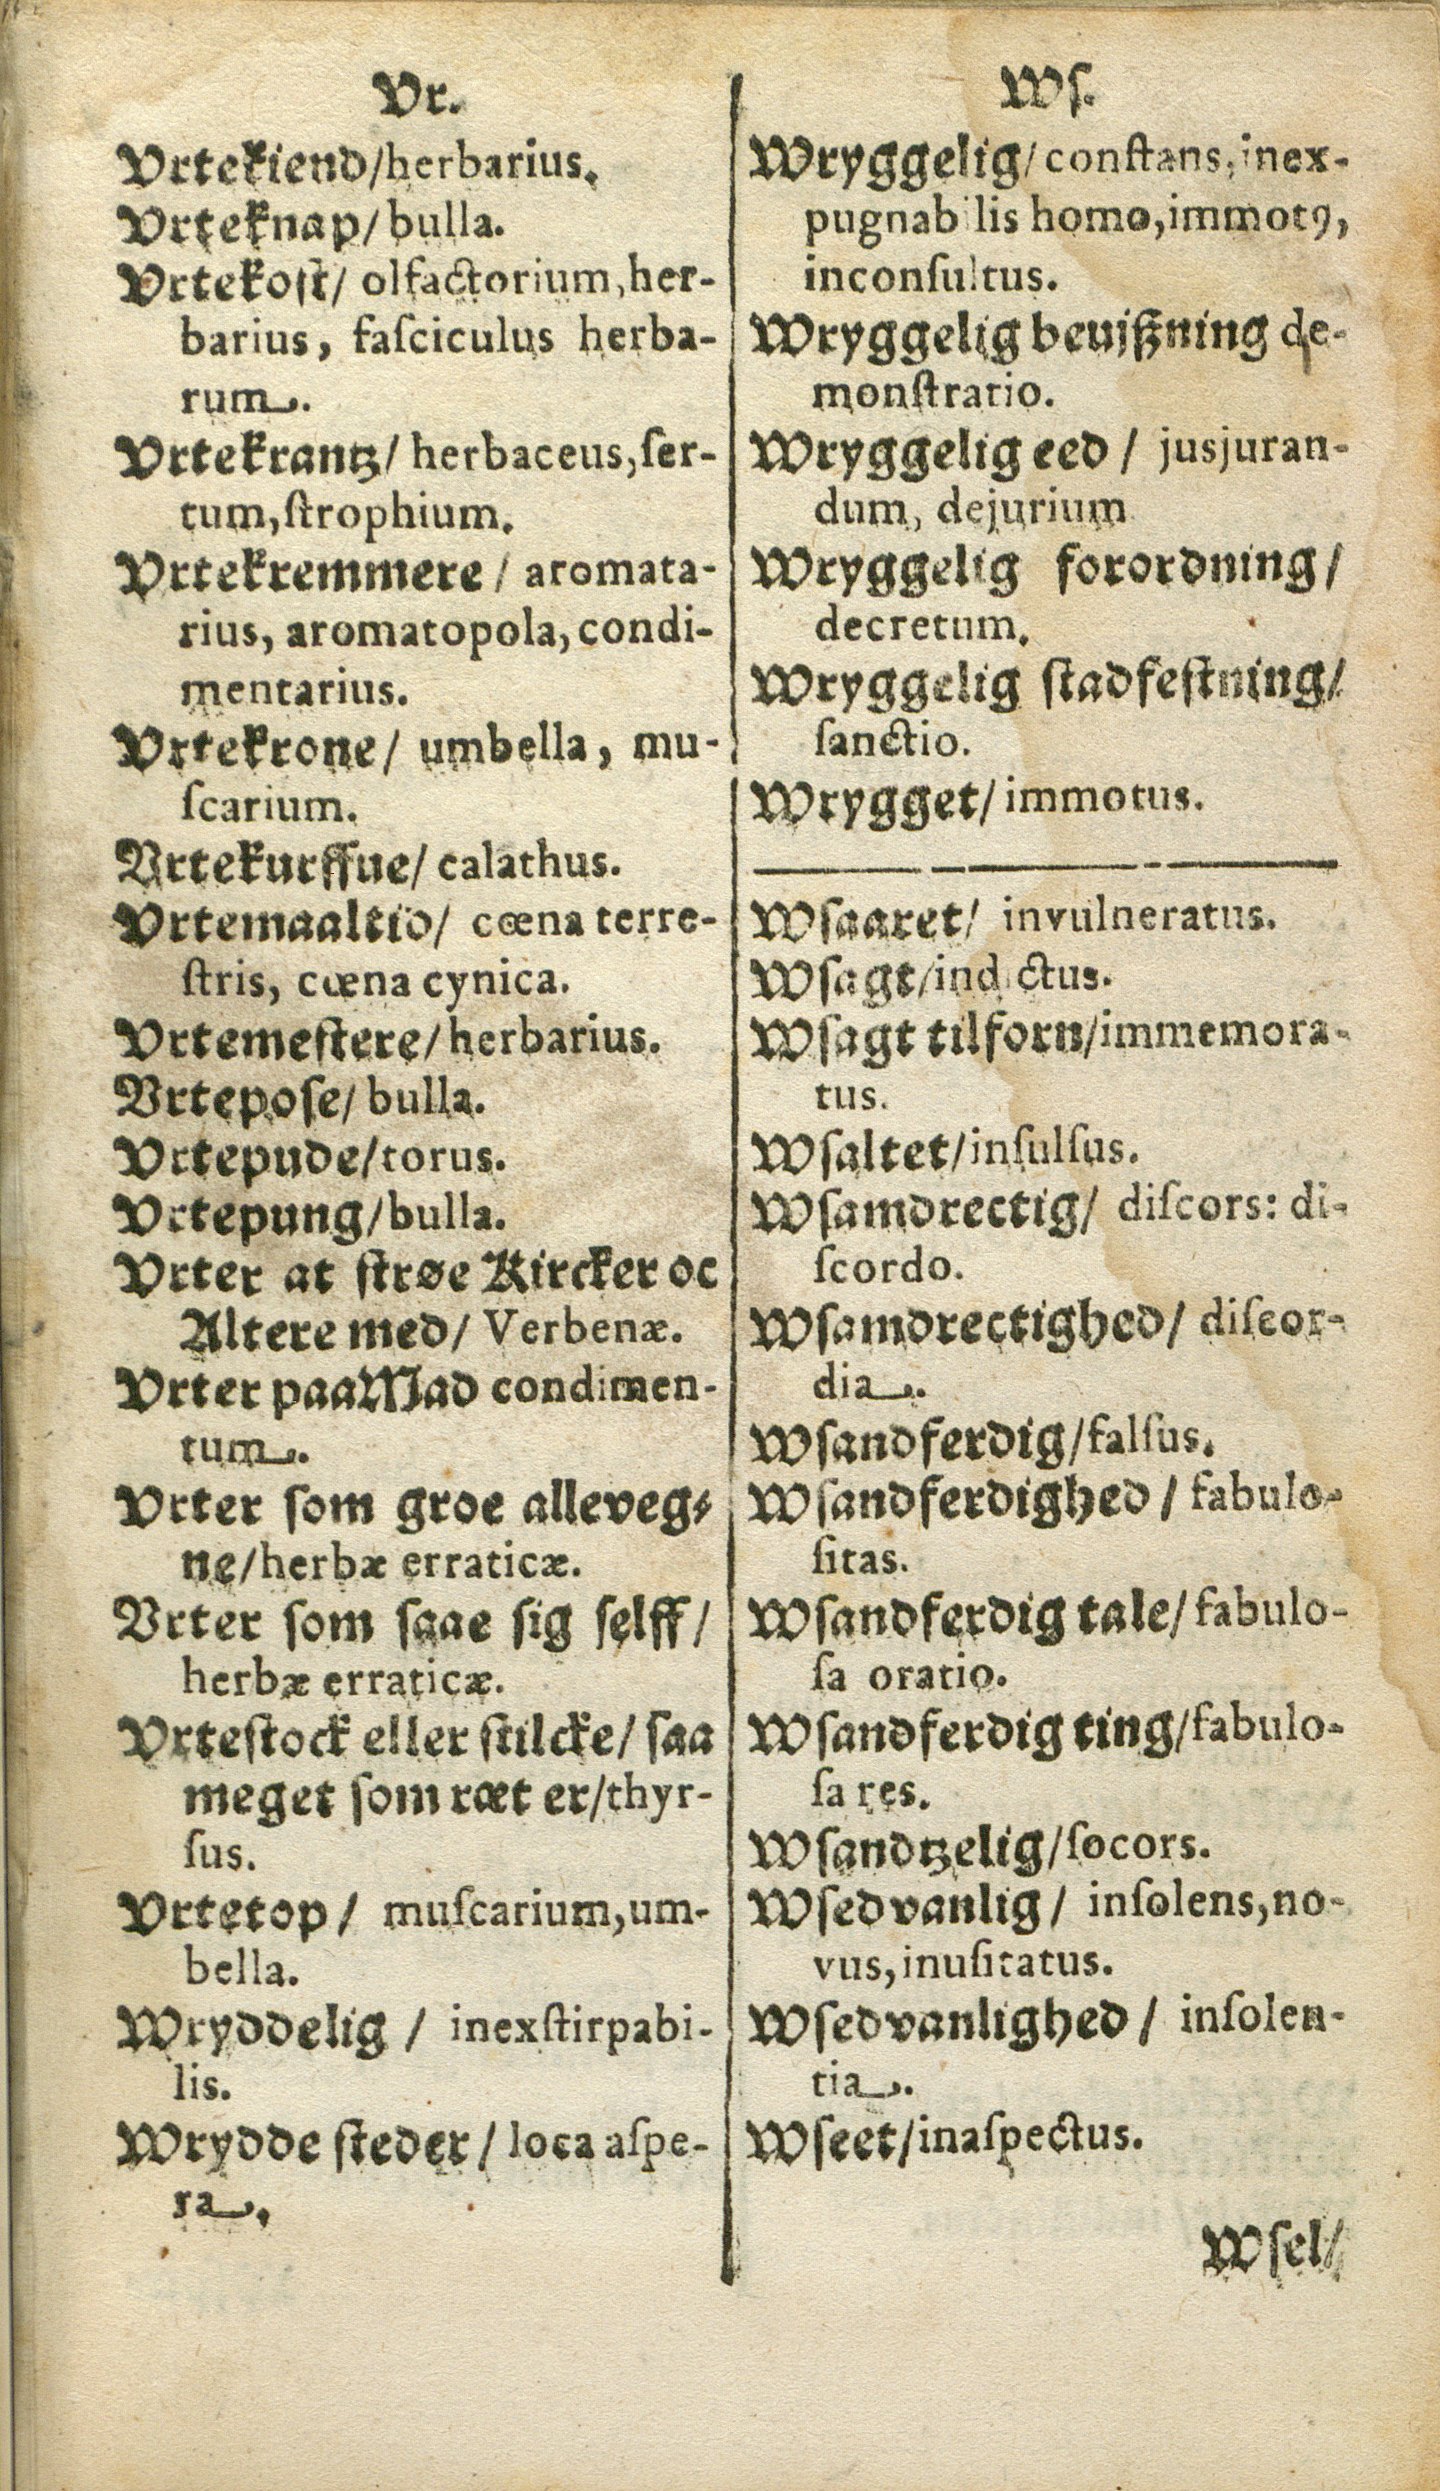 Vr.
Vrtekiend/herbarius.
Vrteknap/ bulla.
Vrtekoſt/ olfactorium, her-
barius, faſciculus herba-
rum.
Vrtekrantz/ herbaceus, ſer-
tum, ſtrophium.
Vrtekremmere / aromata-
rius, aromatopola, condi-
mentarius.
Vrtekrone/ umbella, mu-
ſcarium.
Vrtekurffue/ calathus.
Vrtemaaltid/ cœna terre-
ſtris, cœna cynica.
Vrtemeſtere/ herbarius.
Vrtepoſe/ bulla.
Vrtepude/torus.
Vrtepung/bulla.
Vrter at ſtrøe Kircker oc
Altere med/ Verbenæ.
Vrter paa Mad condimen-
tum.
Vrter ſom groe alleveg-
ne/herbæ erraticæ.
Vrter ſom ſaae ſig ſelff/
herbæ erraticæ.
Vrteſtock eller ſtilcke/ ſaa
meget ſom ræt er/thyr-
ſus.
Vrtetop / muſcarium, um-
bella.
Wryddelig / inexſtirpabi-
lis.
Wrydde ſteder / loca aſpe-
ra.
Wſ.
Wryggelig/ conſtans, inex-
pugnabilis homo, immotꝰ,
inconſultus.
Wryggelig beuiſzning de-
monſtratio.
Wryggelig eed / jusjuran-
dum, dejurium
Wryggelig forordning/
decretum.
Wryggelig ſtadfeſtning/
ſanctio.
Wrygget/ immotus.
Wſaaret/ invulneratus.
Wſagt/indictus.
Wſagt tilforn/immemora-
tus.
Wſaltet/inſulſus.
Wſamdrectig/ diſcors: di-
ſcordo.
Wſamdrectighed/ diſcor-
dia.
Wſandferdig/falſus.
Wſandferdighed / fabulo-
ſitas.
Wſandferdig tale/ fabulo-
ſa oratio.
Wſandferdig ting/fabulo-
ſa res.
Wſandtzelig/ſocors.
Wſedvanlig/ inſolens, no-
vus, inuſitatus.
Wſedvanlighed / inſolen-
tia.
Wſeet/inaſpectus.
Wſel/